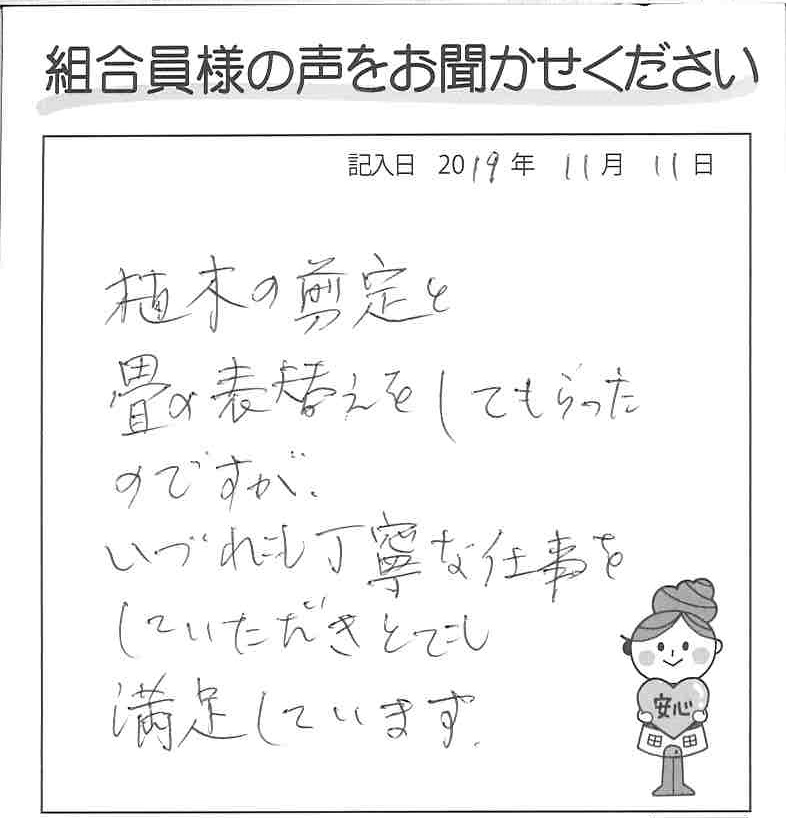 組合員様の声をお聞かせください
記入日 2019年 11月 11日
植木の剪定と
畳の表替えをしてもらった
のですが、
いづれも丁寧な仕事を
していただきとても
満足しています。
安心